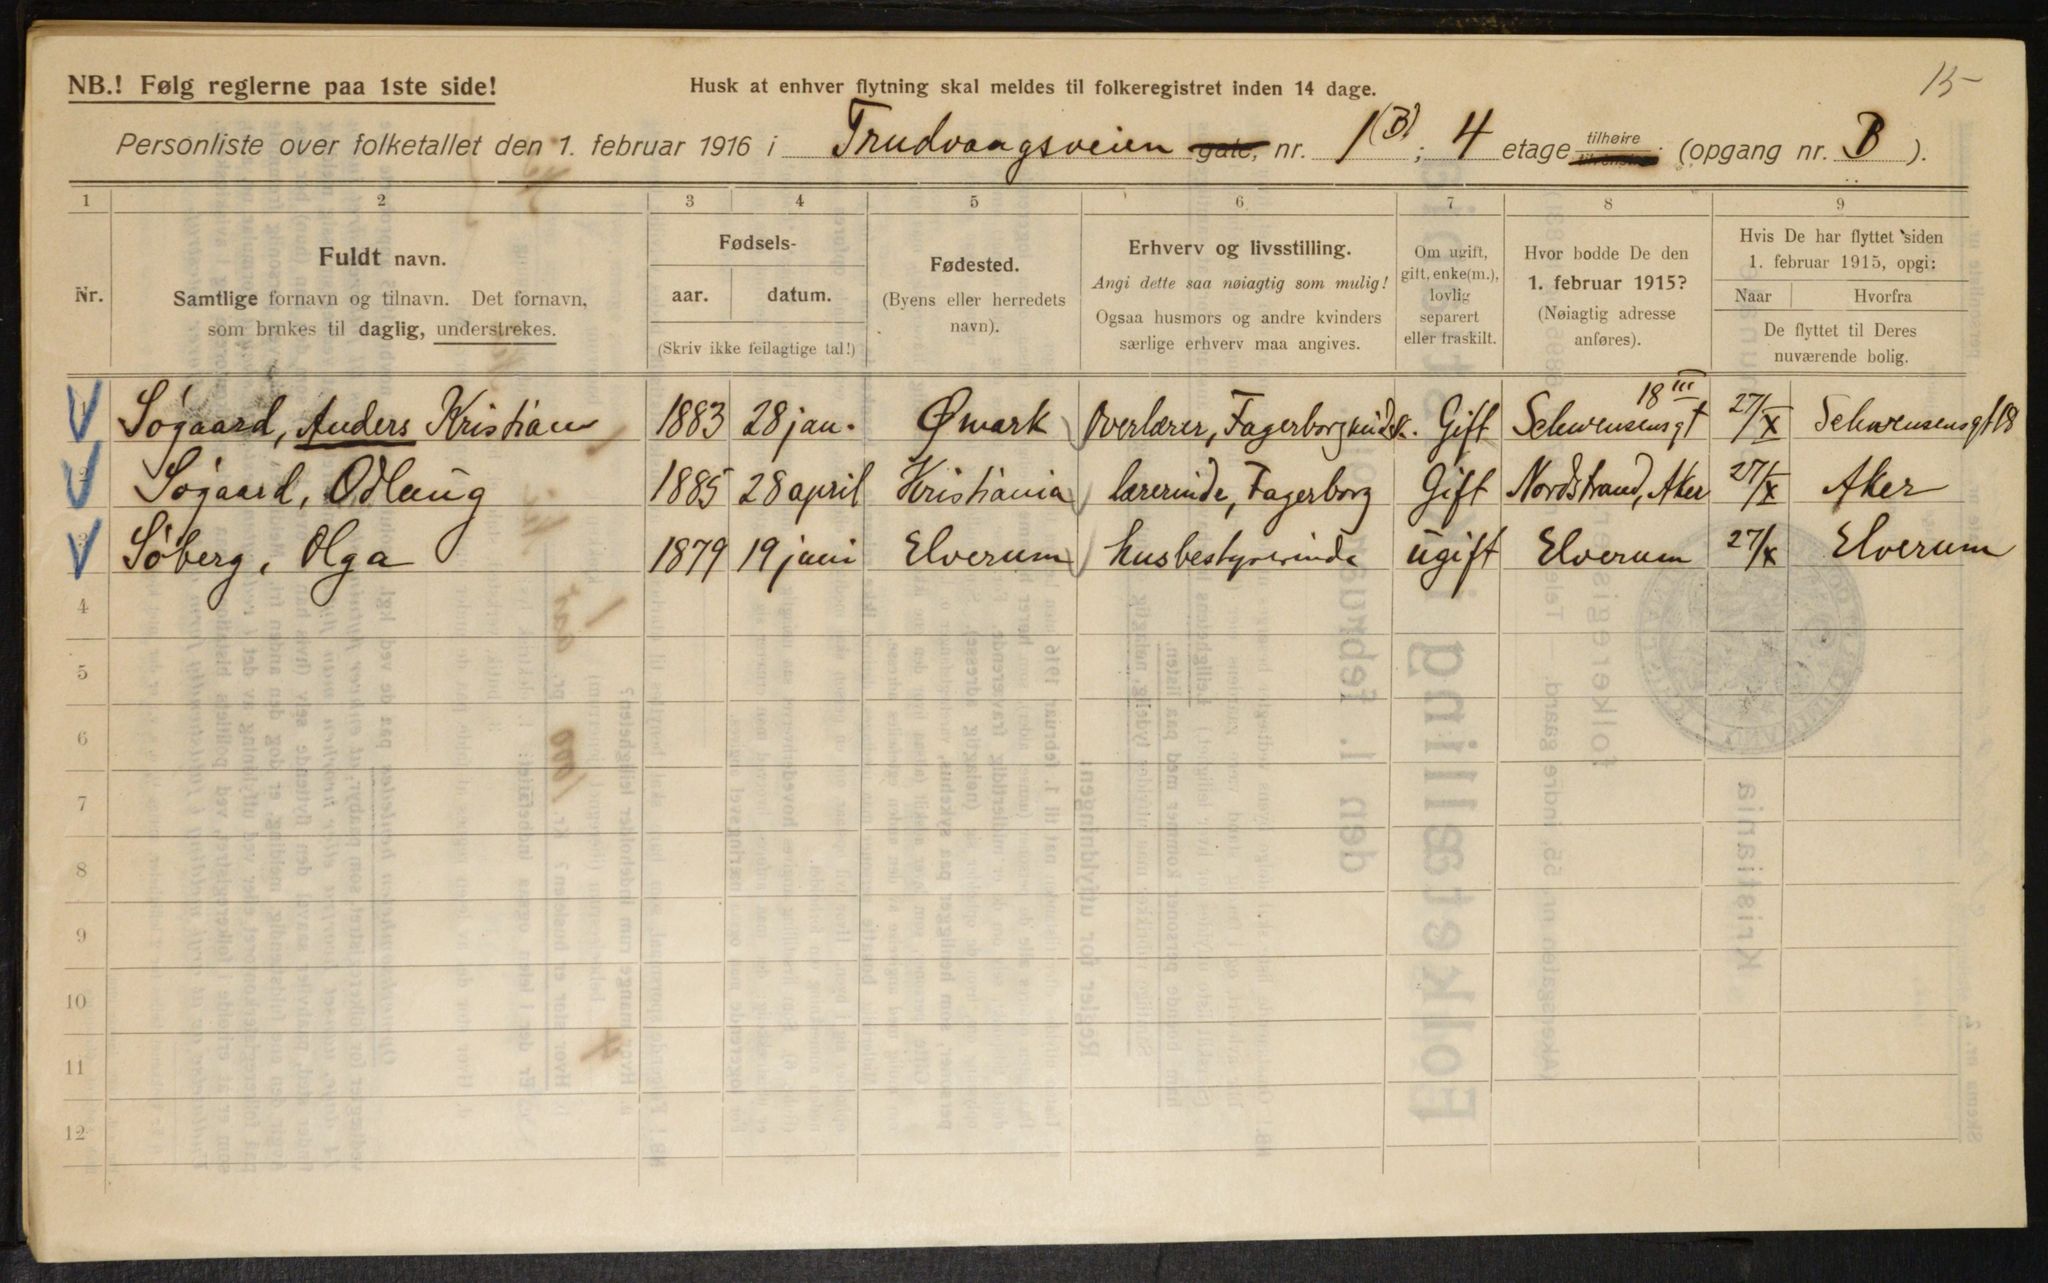 15
NB.! Følg reglerne paa 1ste side!
Husk at enhver flytning skal meldes til folkeregistret inden 14 dage.
Personliste over folketallet den 1. februar 1916 i Trudvangsveien gate, nr. 1 (B) ; 4 etage tilhøire (opgang nr. B ).
1 2 3 4 5 6 7 8 9
Nr.
Fuldt navn.
Samtlige fornavn og tilnavn. Det fornavn,
som brukes til daglig, understrekes.
Fødsels-
aar. datum.
(Skriv ikke feilagtige tal!)
Fødested.
(Byens eller herredets
navn).
Erhverv og livsstilling.
Angi dette saa nøiagtig som mulig!
Ogsaa husmors og andre kvinders
særlige erhverv maa angives.
Om ugift,
gift, enke(m.),
lovlig
separert
eller fraskilt.
Hvor bodde De den
1. februar 1915?
(Nøiagtig adresse
anføres).
Hvis De har flyttet siden
1. februar 1915, opgi:
Naar Hvorfra
De flyttet til Deres
nuværende bolig.
1 Søgaard, Anders Kristian 1883 28 jan. Ømark Overlærer, Gift Schwensensgt 18 III 27/X Schwensensgt 18
2 Søgaard, Odlaug 1885 28 april Kristiania lærerinde, Fagerborg Gift Nordstrand, Aker 27/X Aker
3 Søberg, Olga 1879 19 juni Elverum husbestyrerinde ugift Elverum 27/X Elverum
4
5
6
7
8
9
10
11
12